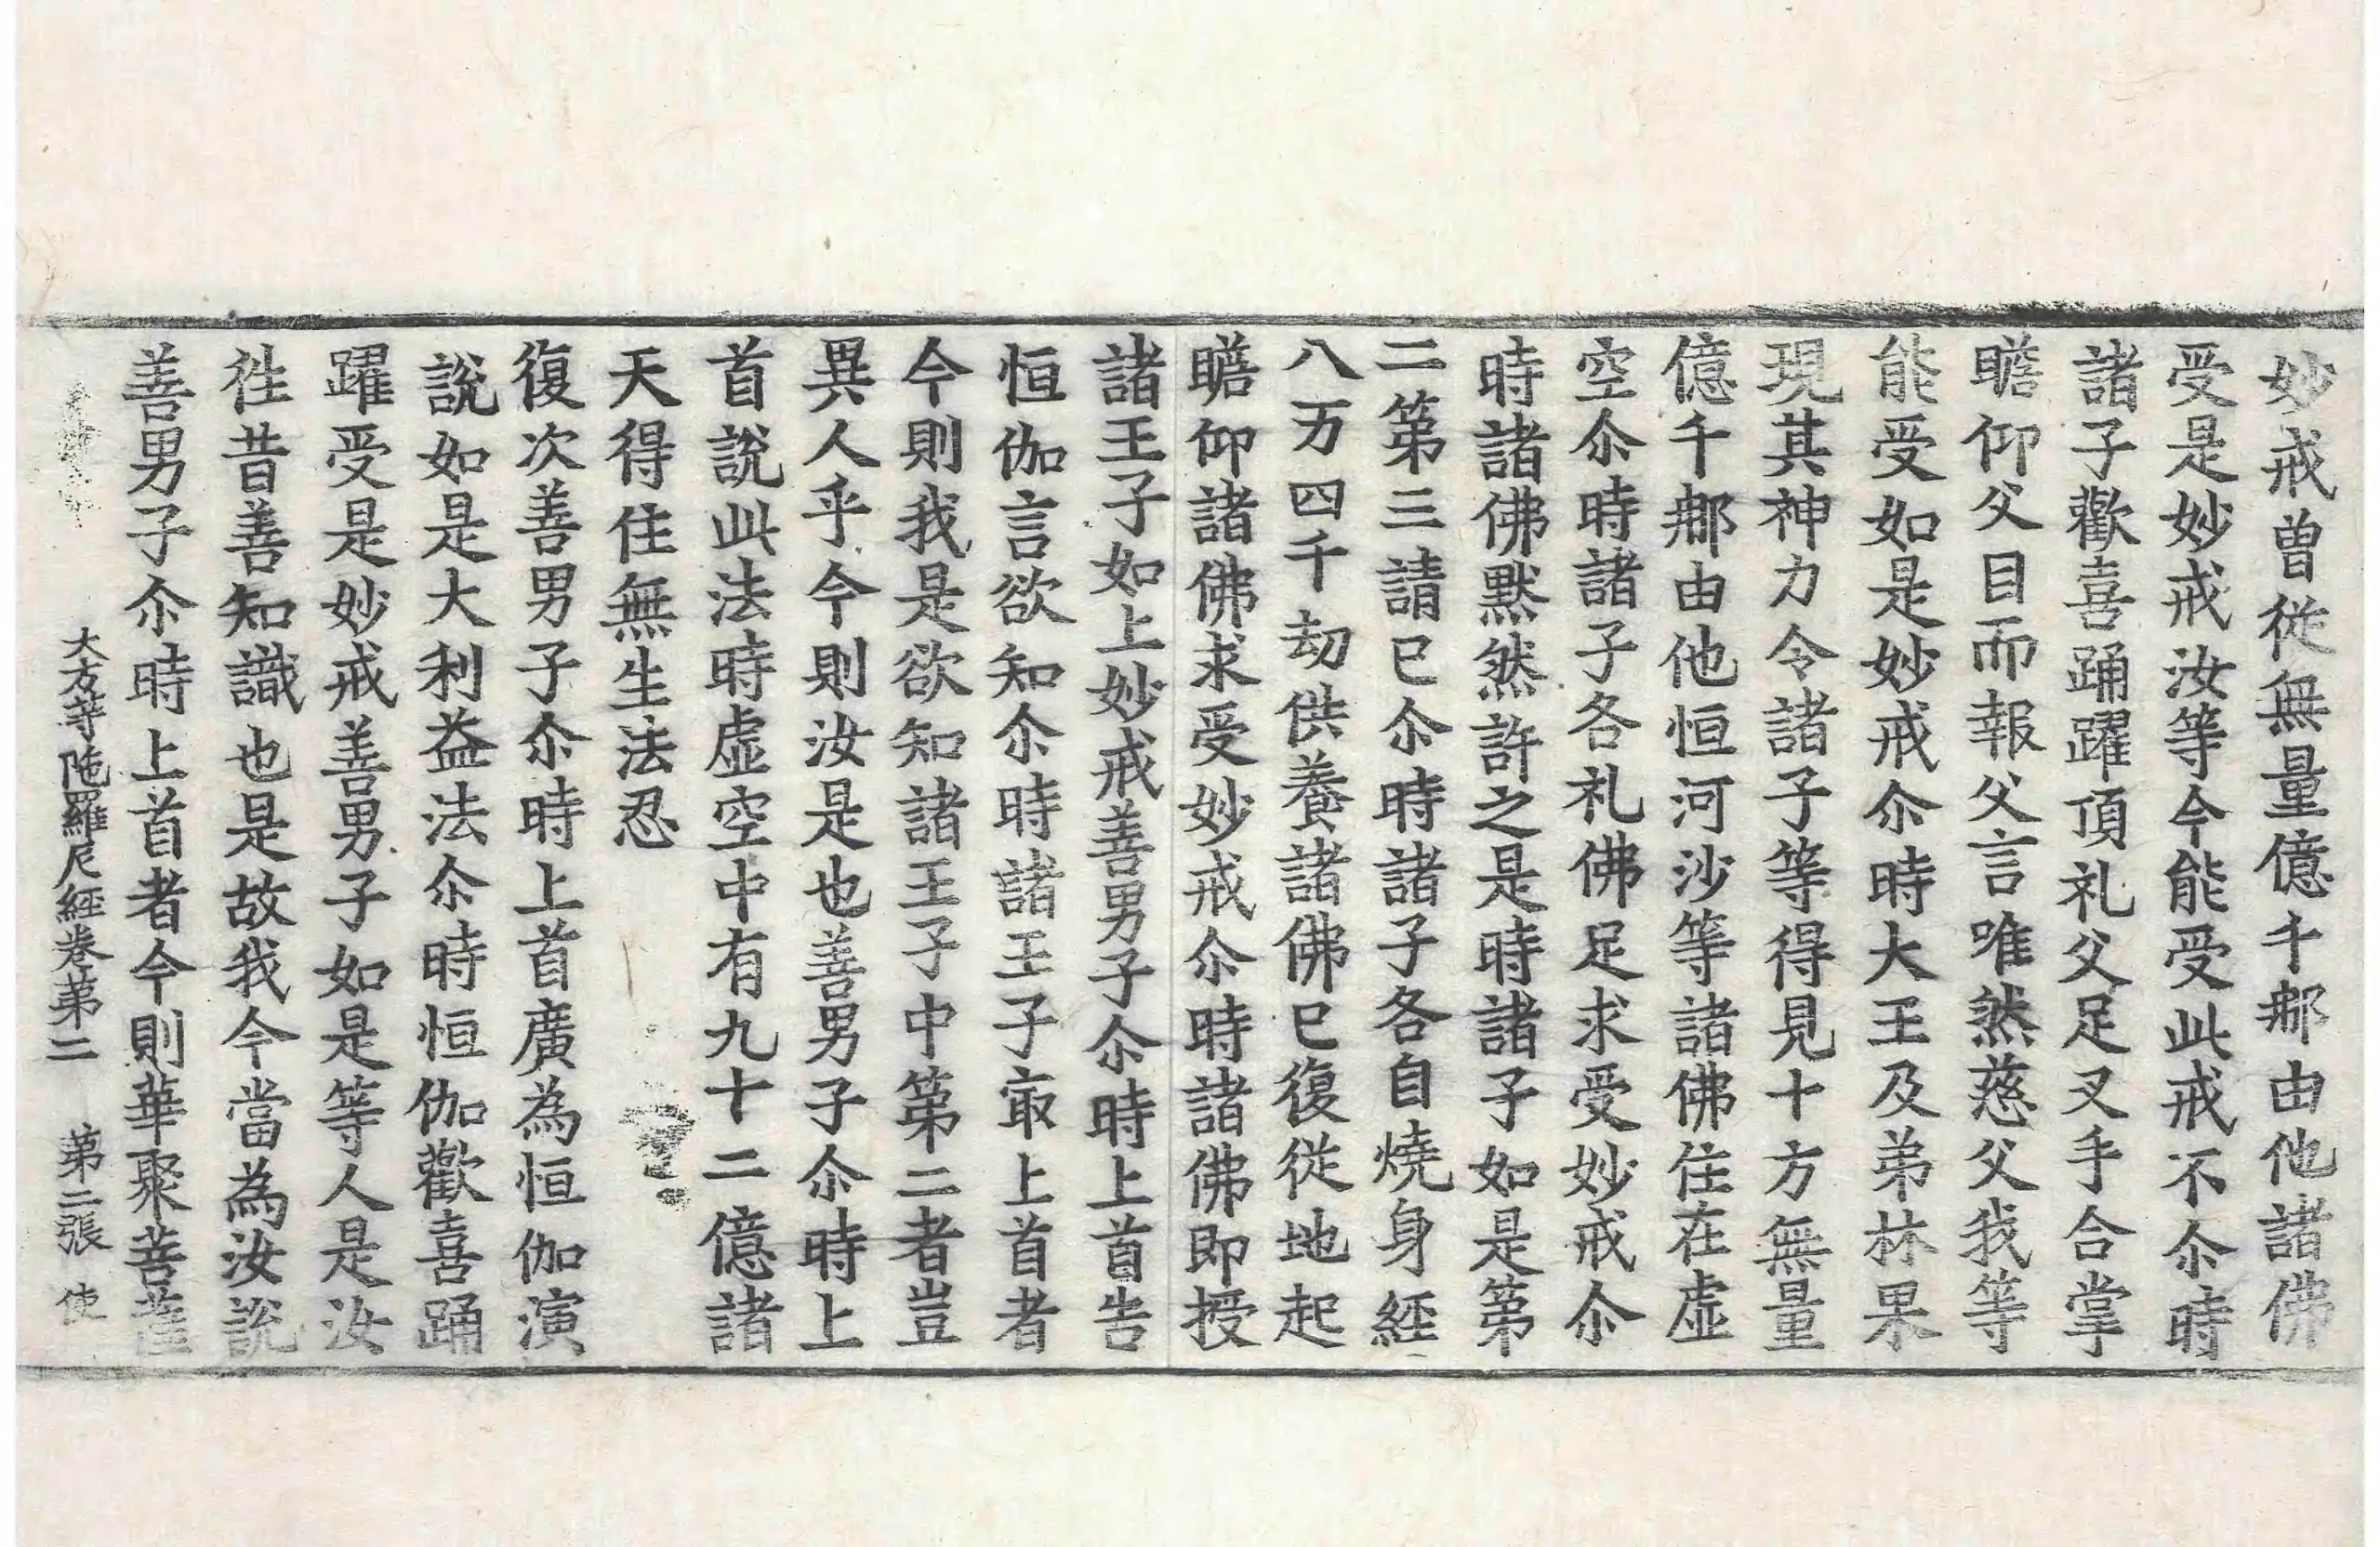 妙戒曾從無量億千那由他諸佛
受是妙戒汝等今能受此戒不尒時
諸子歡喜踊躍頂礼父足叉手合掌
瞻仰父目而報父言唯然慈父我等
能受如是妙戒尒時大王及弟林果
現其神力令諸子等得見十方無量
億千那由他恒河沙等諸佛住在虛
空尒時諸子各礼佛足求受妙戒尒
時諸佛默然許之是時諸子如是第
二第三請已尒時諸子各自燒身經
八万四千劫供養諸佛已復從地起
瞻仰諸佛求受妙戒尒時諸佛即授
諸王子如上妙戒善男子尒時上首告
恒伽言欲知尒時諸王子㝡上首者
今則我是欲知諸王子中第二者豈
異人乎今則汝是也善男子尒時上
首說此法時虛空中有九十二億諸
天得住無生法忍
復次善男子尒時上首廣為恒伽演
說如是大利益法尒時恒伽歡喜踊
躍受是妙戒善男子如是等人是汝
徃昔善知識也是故我今當為汝說
善男子尒時上首者今則華聚菩薩
大方等陁羅尼經卷第二　第二張　使